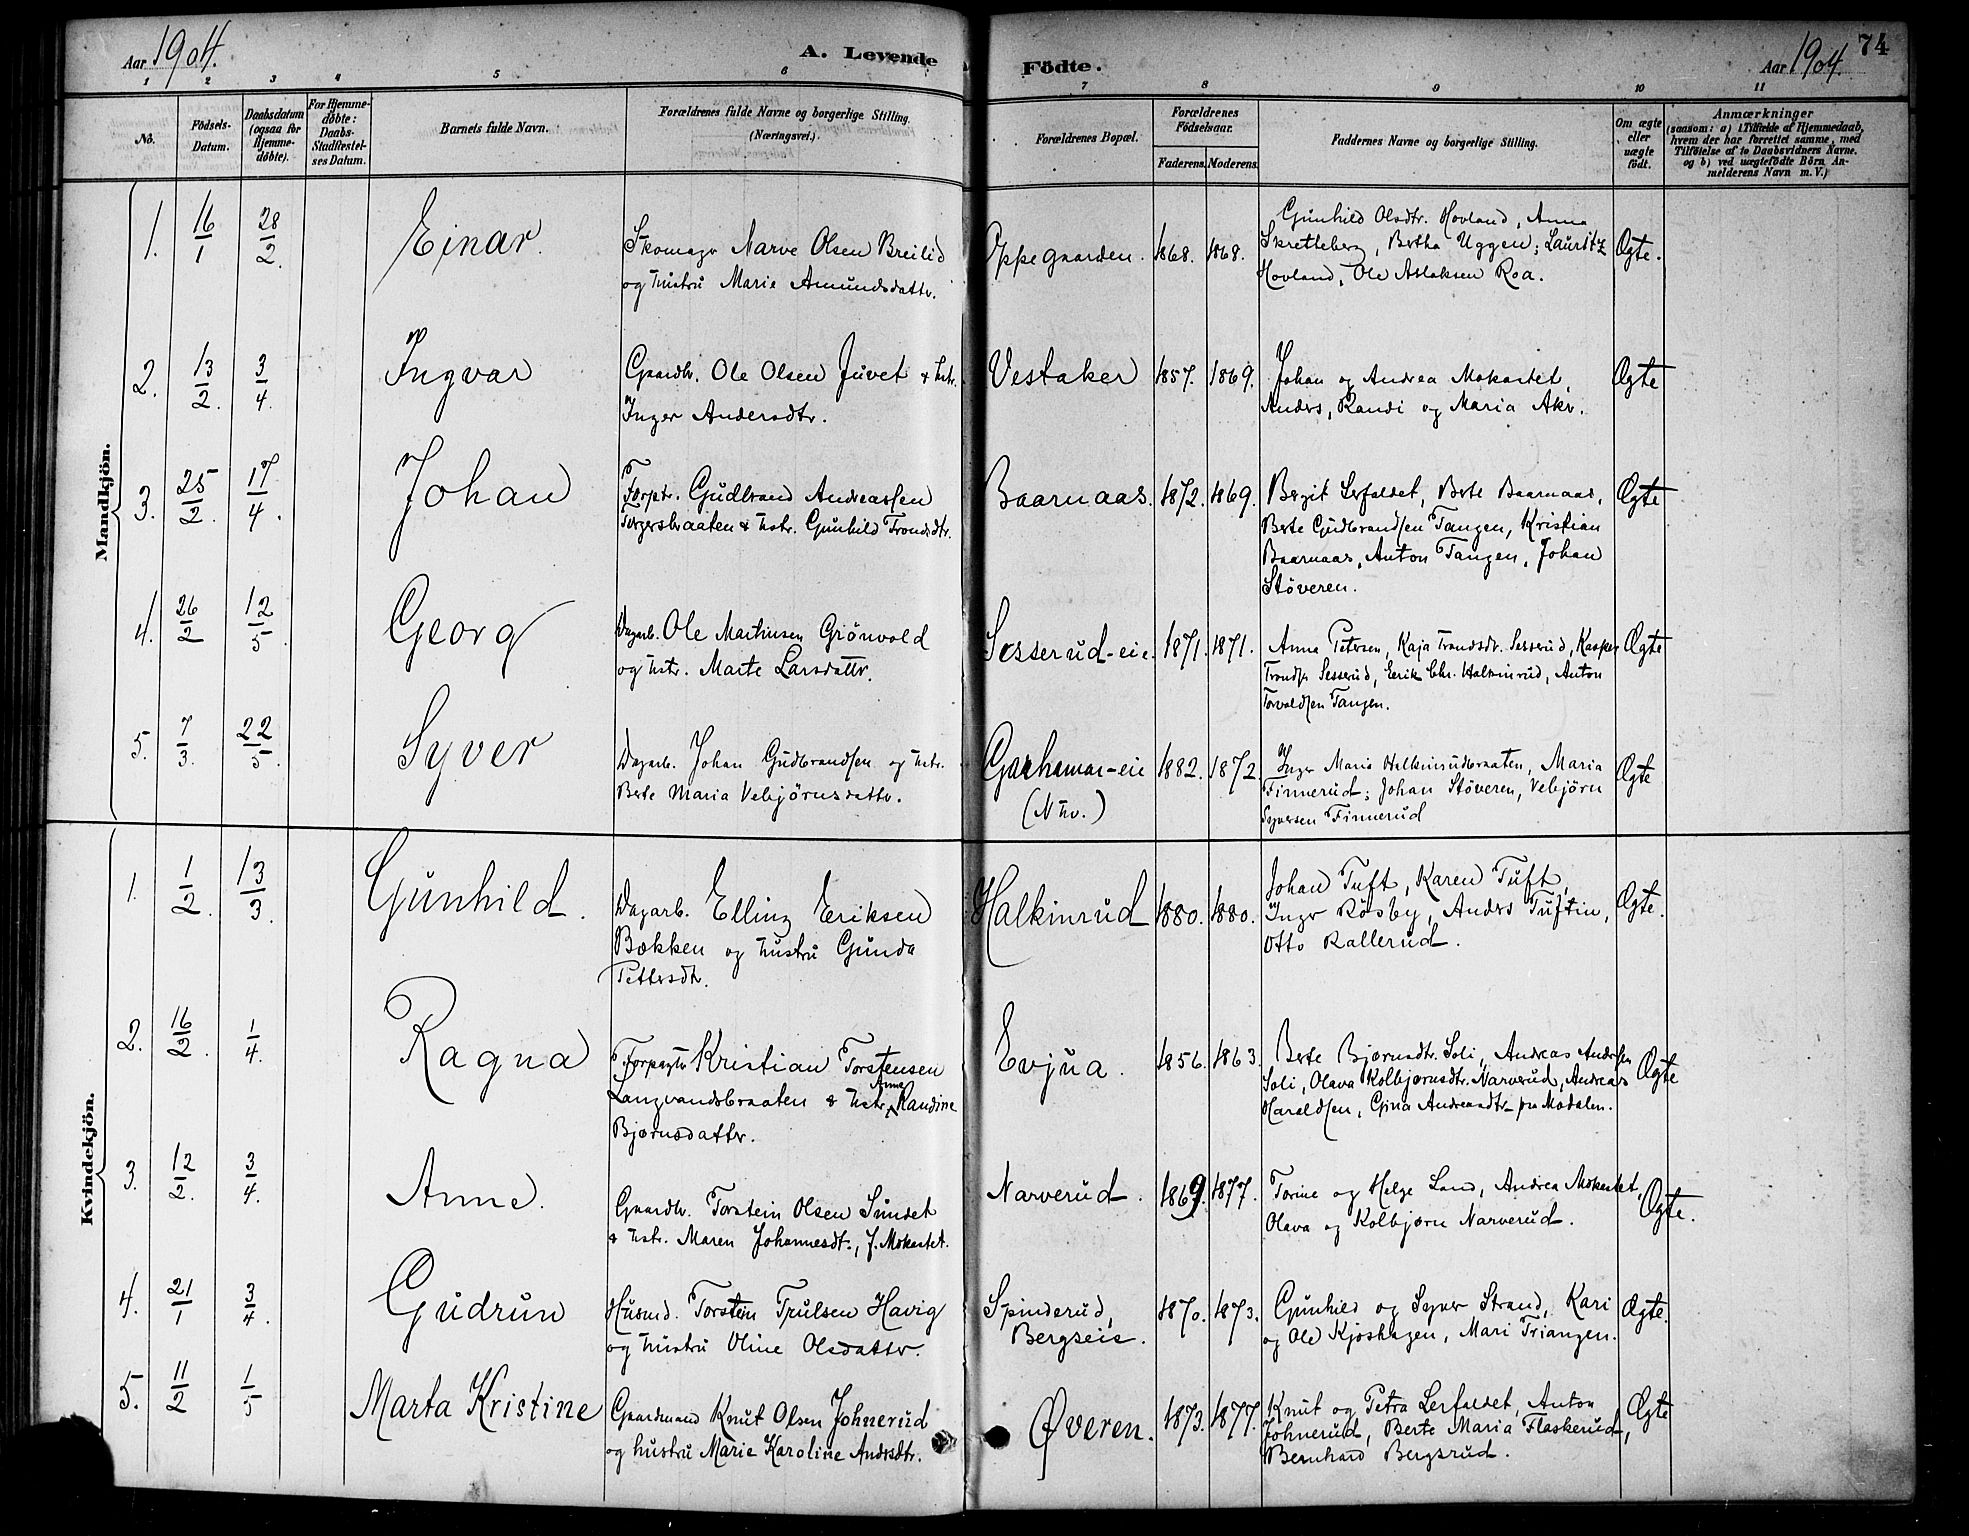 Aar 1904.
A. Levende
Födte.
Aar 1904.
74
1 2 3 4 5 6 7 8 9 10 11
No.
Födsels-Datum.
Daabsdatum (ogsaa for Hjemme-döbte).
For Hjemme-döbte: Daabs-Stadfæstel-ses Datum.
Barnets fulde Navn.
Forældrenes fulde Navne og borgerlige Stilling.
(Næringsvei.)
Forældrenes Bopæl.
Forældrenes Födselsaar.
Faderens. Moderens.
Faddernes Navne og borgerlige Stilling.
Om ægte eller uægte födt.
Anmærkninger
(saasom: a) i Tilfælde af Hjemmedaab,
hvem der har forrettet samme, med
Tilföielse af to Daabsvidners Navne.
og b) ved uægtefödte Börn An-
melderens Navn m. V.)
Mandkjön.
1. 16/1 28/2. Einar.
Skomagr Narve Olsen Breilid
og hustru Marie Amundsdattr.
Oppegaarden. 1868. 1868.
Gunhild Olsdtr. Hovland, Anna
Skretteberg, Bertha Uggen; Lauritz
Hovland, Ole Aslaksen Roa.
Ægte.
2. 13/2. 3/4. Ingvar
Gaardbr. Ole Olsen Juvet & hstr.
Inger Andersdtr.
Vestaker 1857. 1869.
Johan og Andrea Mokastet,
Andrs, Randi og Maria Akr.
Ægte
3. 25/2. 17/4. Johan
Forptr. Gudbrand Andreassen
Torgersbraaten & hstr. Gunhild Trondsdtr.
Baarnaas. 1872. 1869.
Bergit Lerfaldet, Berte Baarnaas,
Berte Gudbrandsen Tangen, Kristian
Baarnaas, Anton Tangen, Johan
Stöveren.
Ægte
4. 26/2 12/5. Georg
Dagarb. Ole Martinsen Grönvold
og hstr. Marte Larsdattr.
Sesserud-eie. 1871. 1871.
Anna Petersen, Kaja Trondsdtr. Sesserud, Kasper
Trondsn Sesserud, Eerik Chr. Halkinrud, Anton
Torvaldsen Tangen.
Ægte
5. 7/3. 22/5. Syver
Dagarb. Johan Gudbrandsen og hstr.
Berte Maria Vebjörnsdattr.
Garhamar-eie
(N hv.)
1882. 1872
Inger Maria Halkinrudbraaten, Maria
Finnerud; Johan Stöveren, Vebjörn
Syversen Finnerud
Ægte
Kvindekjön.
1. 1/2. 13/3. Gunhild.
Dagarb. Elling Eriksen
Bækken og hustru Gunda
Pettersdtr.
Halkinrud 1880. 1880.
Johan Tuft, Karen Tuft,
Ingr Rösby, Andrs Tuftin,
Otto Rallerud.
Ægte.
2. 16/2. 1/4. Ragna
Forpagtr Kristian Torstensen
Langvandsbraaten & hstr. Anne Randine
Bjørnsdattr.
Evjua. 1856. 1863.
Berte Bjørnsdtr. Soli, Andreas Andersen
Soli, Olava Kolbjørnsdtr. Narverud, Andreas
Haraldsen, Gina Andreasdtr pr Modalen.
Ægte
3. 12/2. 3/4. Anne.
Gaardbr. Torstein Olsen Sundet
& hstr. Maren Johannesdtr., f. Mokastet.
Narverud. 1869. 1877.
Torine og Helge Sand, Andrea Mokastet,
Olava og Kolbjørn Narverud.
Ægte.
4. 21/1 3/4. Gudrun
Husmd. Torstein Trulsen Havig
og hustru Oline Olsdattr.
Spinderud,
Bergseie.
1870. 1873.
Gunhild og Syver Strand, Kari
og Ole Kjöshagen, Mari Triangen.
Ægte.
5. 11/2 1/5 Marta Kristine
Gaardmand Knut Olsen Johnerud
og hustru Marie Karoline Andrsdtr.
Øveren. 1873. 1877.
Knut og Petra Lerfaldet, Anton
Johnerud, Berte Maria Flaskerud,
Bernhard Bergsrud.
Ægte